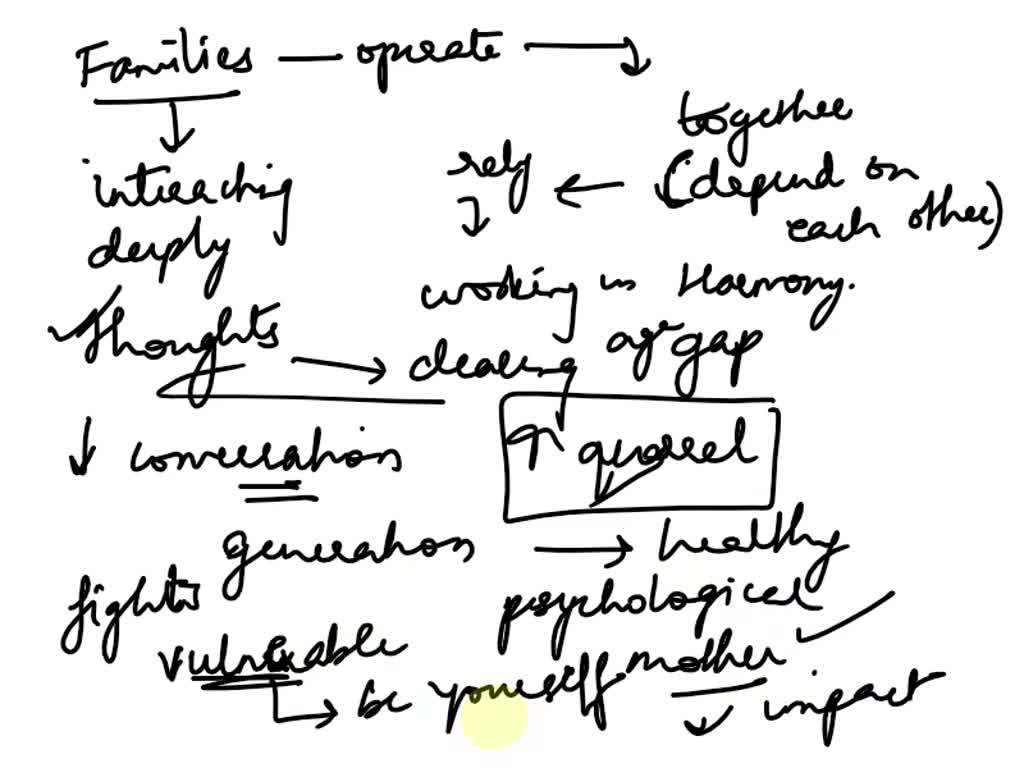 Families — operate →
together
interacting rely ← (depend on
deeply each other)
working in Harmony.
Thoughts → clearing age gap
↓ conversation ↑ quarrel
generation → healthy
fights psychological
vulnerable mother ✓
→ be yourself impact